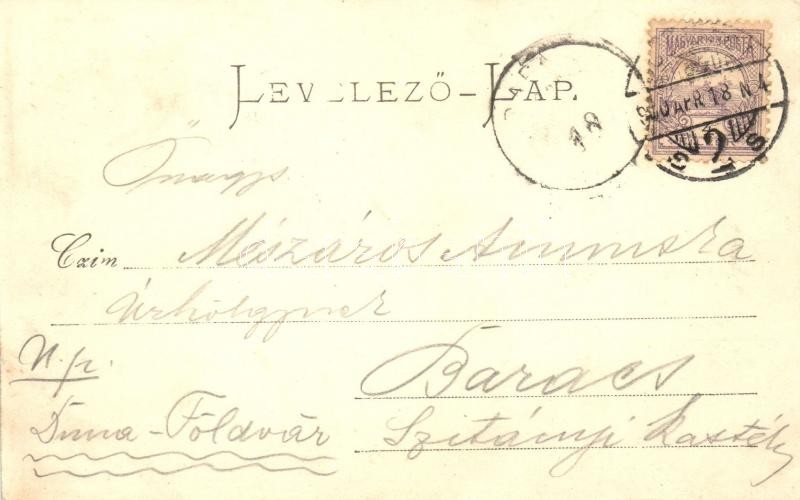 LEVELEZŐ-LAP.
MAGYAR KIR. POSTA
900 APR 18 N 4
18
Czim Mészáros Annuska
Úrhölgynek
U. p.
Baracs
Duna-Földvár
Szitányi kastély